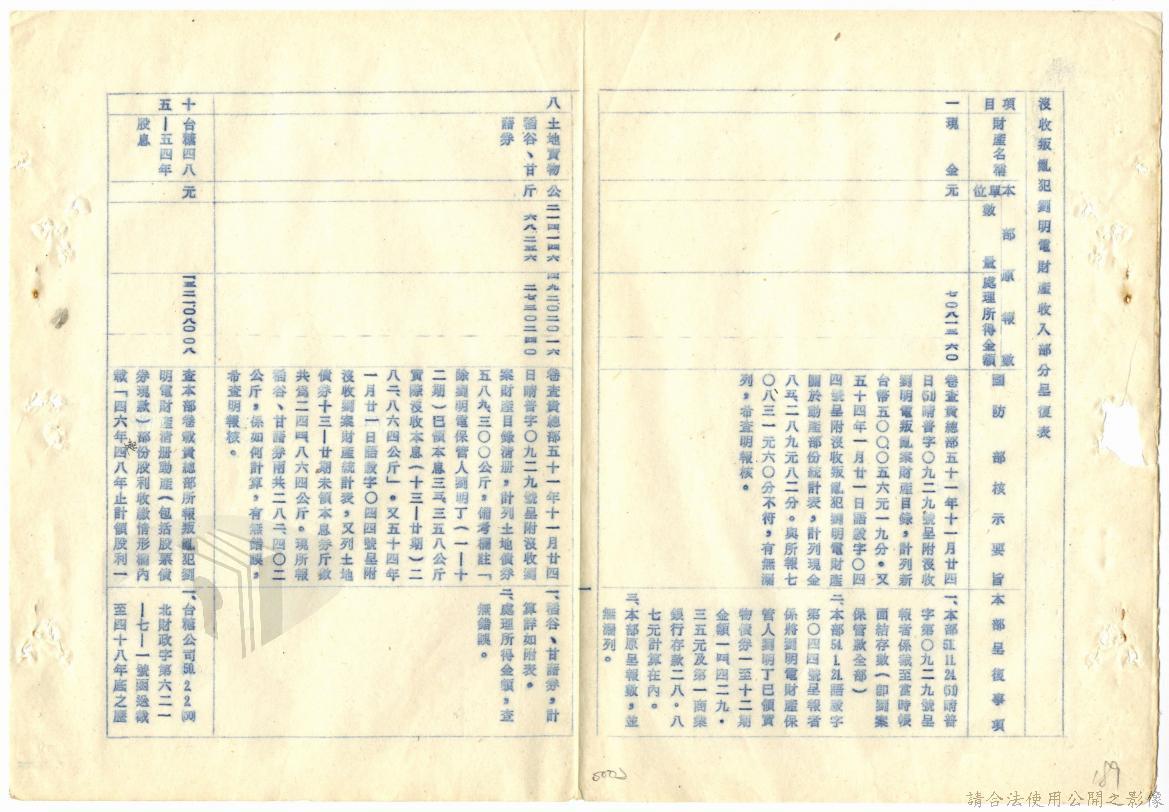 沒收叛亂犯劉明電財產收入部分呈復表
項目
財產名稱
單位
本部原報數
數量
處理所得金額
國防部核示要旨
本部呈復事項
一
現金
元
七〇八一三六〇
卷查貴總部五十一年十一月廿四
日(51)晴普字〇九二九號呈附沒收
劉明電叛亂案財產目錄,計列新
台幣五〇〇〇五六元一九分。又
五十四年一月廿一日語設字〇四
四號呈附沒收叛亂犯劉明電財產
關於動產部份統計表,計列現金
八五、二八九元八二分。與所報七
〇、八一三元六〇分不符,有無漏
列,希查明報核。
一、本部51.11.24.(51)晴普
字第〇九二九號呈
報者係截至當時帳
面結存數(即劉案
保管款全部)
二、本部54.1.21.語設字
第〇四四號呈報者
係將劉明電財產保
管人劉明丁已領實
物債券一至十二期
金額一四四二九・
三五元及第一商業
銀行存款二八・八
七元計算在內。
三、本部原呈報數,並
無漏列。
八
土地實物
稻谷、甘
藷券
公斤
二一四一四六
六八二五六
四九二〇二〇一六
二七三〇二四〇
卷查貴總部五十一年十一月廿四
日晴普字〇九二九號呈附沒收劉
案財產目錄清册,計列土地債券
五八九、三〇〇公斤,備考欄註「
除劉明電保管人劉明丁(一—十
二期)已領本息三三、三五八公斤
實際沒收本息(十三—廿期)二
八二、八六四公斤」。又五十四年
一月廿一日語設字〇四四號呈附
沒收劉案財產統計表,又列土地
債券十三—廿期未領本息券斤數
共爲二四四、八六四公斤。現所報
稻谷、甘藷券兩共二八二、四〇二
公斤,係如何計算,有無錯誤,
希查明報核。
一、稻谷、甘藷券,計
算詳如附表。
二、處理所得金額,查
無錯誤。
十五
台糖四八
—五四年
股息
元
一三二一〇八〇〇八
查本部卷載貴總部所報叛亂犯劉
明電財產清册動產(包括股票債
券現款)部份股利收繳情形欄內
載「四六年四八年止計領股利一
一、台糖公司50.2.2.(50)
北財政字第六二一
—七—一號函送截
至四十八年底之歷
189
請合法使用公開之影像